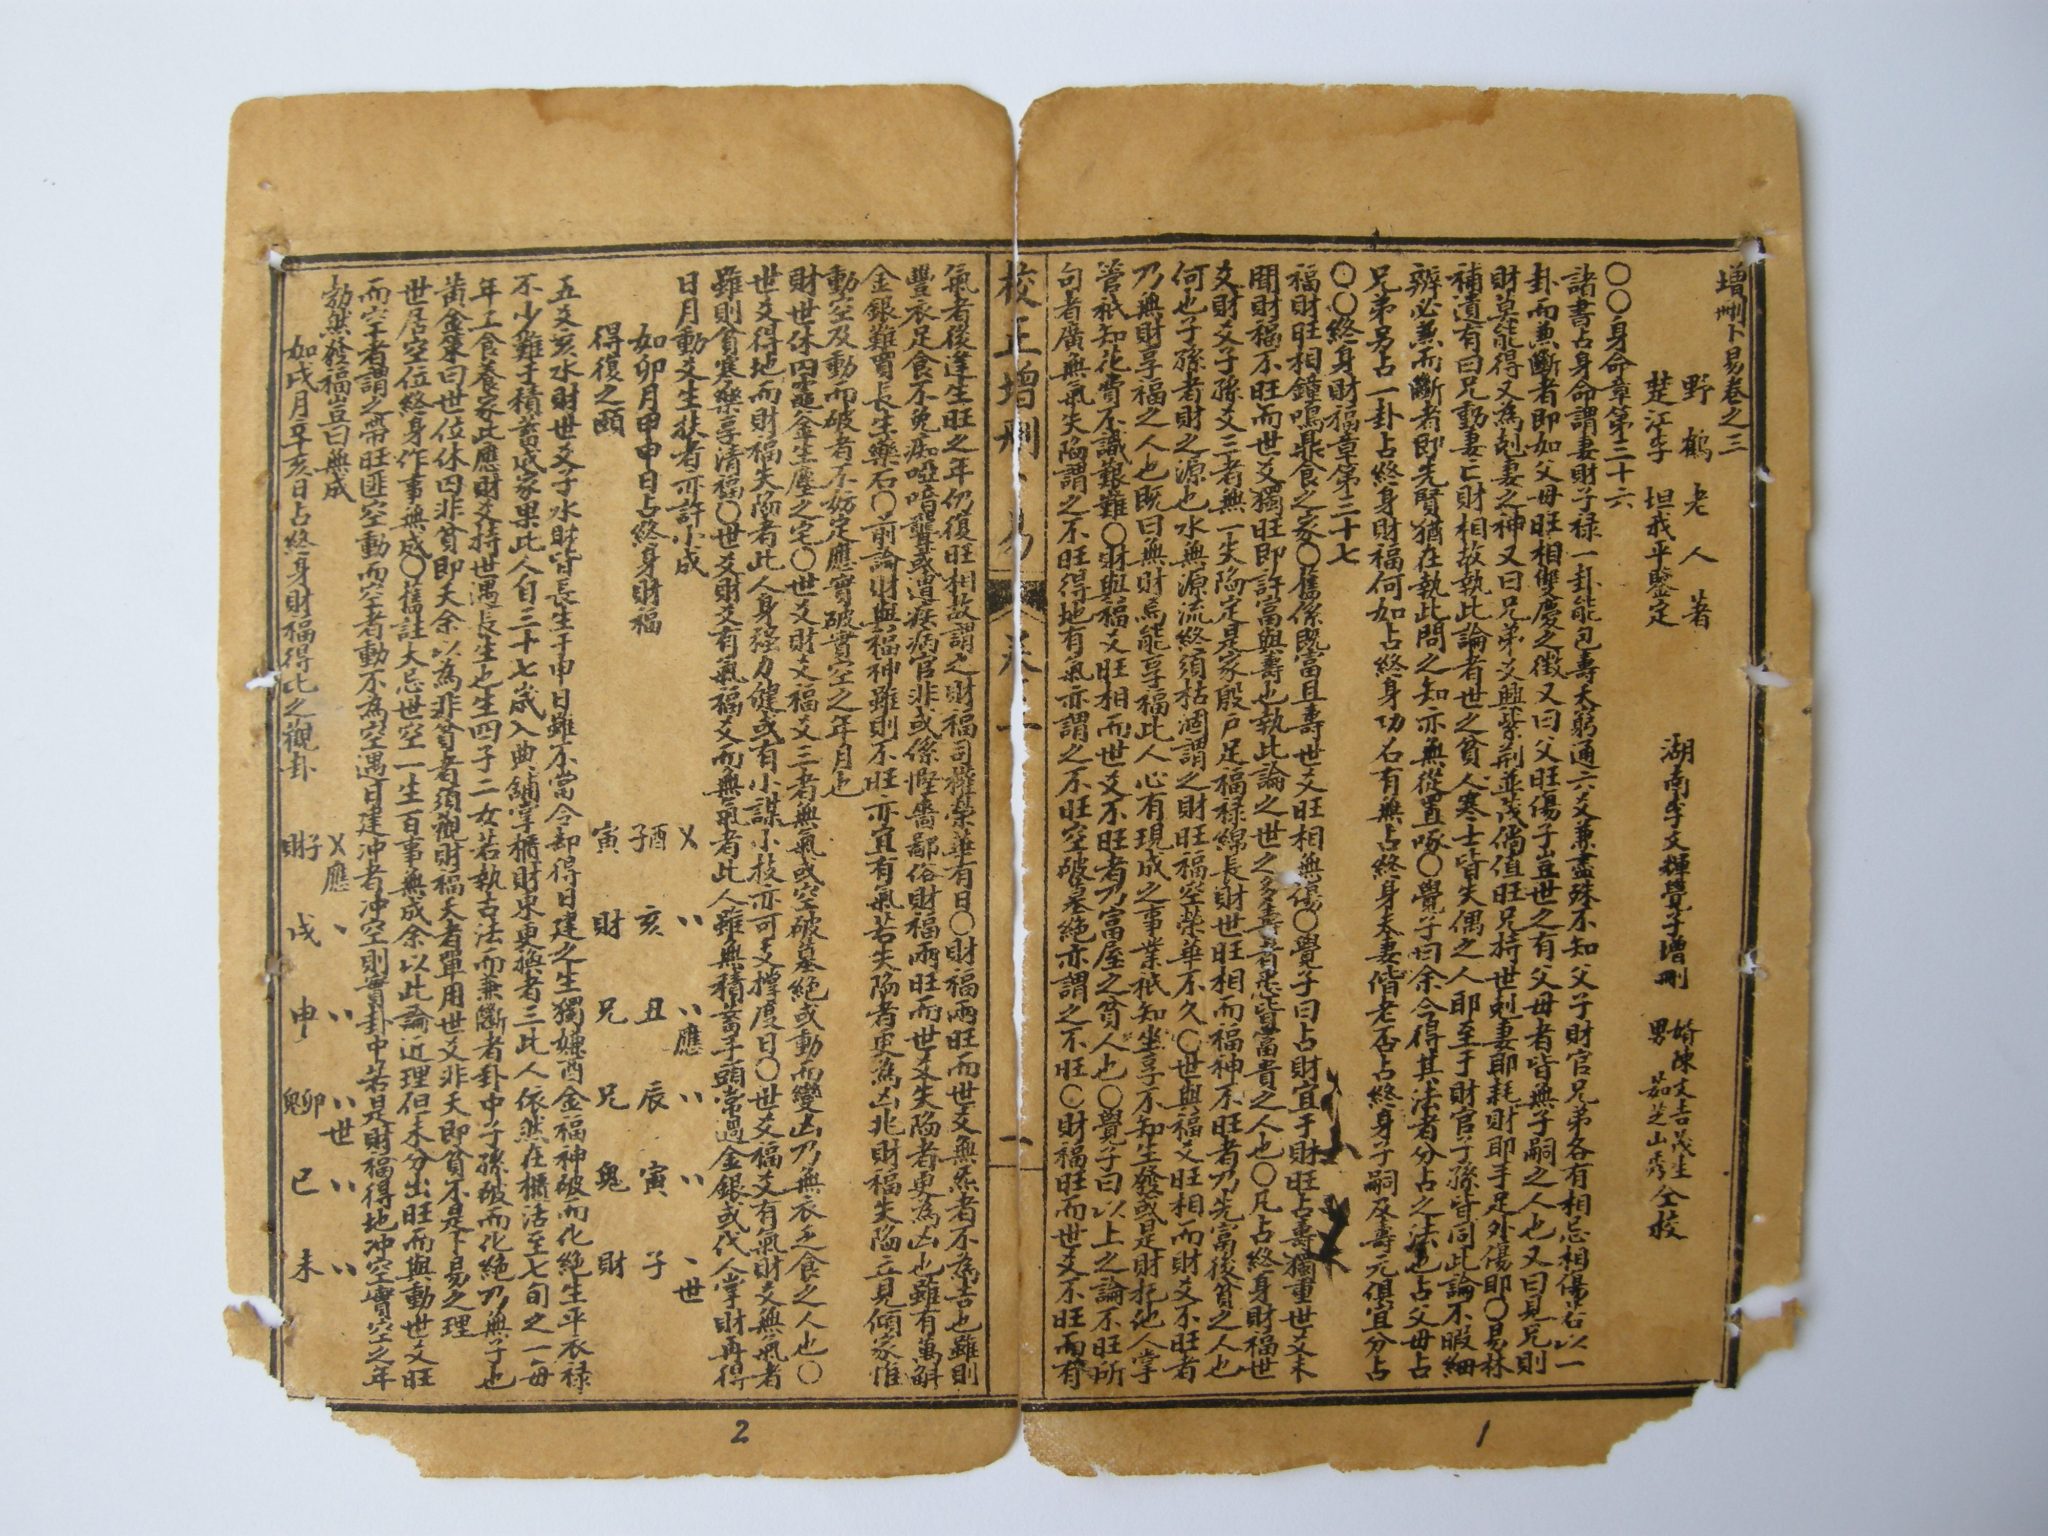 增刪卜易卷之三
野鶴老人著
楚江李坦我平鑒定
湖南李文輝覺子增刪
婿陳文吉茂生
男茹芝山秀全校
〇〇身命章第三十六
諸書占身命謂妻財子祿一卦能包壽夭窮通六爻兼盡殊不知父子財官兄弟各有相忌相傷若以一
卦而兼斷者即如父母旺相雙慶之徵又曰父旺傷子豈世之有父母者皆無子嗣之人也又曰見兄則
財莫能得又為剋妻之神又曰兄弟爻興紫荆並茂倘值旺兄持世剋妻耶耗財耶手足外傷耶〇易林
補遺有曰兄動妻亡財相故執此論者世之貧人寒士皆失偶之人耶至于財官子孫皆同此論不暇細
辨必兼而斷者即先賢猶在執此問之知亦無從置啄〇覺子曰余今得其法者分占之法也占父母占
兄弟另占一卦占終身財福何如占終身功名有無占終身夫妻偕老否占終身子嗣及壽元俱宜分占
〇〇終身財福章第三十七
福財旺相鐘鳴鼎食之家〇舊係既富且壽世爻旺相無傷〇覺子曰占財宜于財旺占壽獨重世爻未
聞財福不旺而世爻獨旺即許富與壽也執此論之世之多壽者悉皆富貴之人也〇凡占終身財福世
爻財爻子孫爻三者無一失陷定是家殷戶足福祿綿長財世旺相而福神不旺者乃先富後貧之人也
何也子孫者財之源也水無源流終須枯涸謂之財旺福空榮華不久〇世與福爻旺相而財爻不旺者
乃無財享福之人也既曰無財焉能享福此人心有現成之事業祇知坐享不知生發或是財托他人掌
管祇知花費不識艱難〇財與福爻旺相而世爻不旺者乃富屋之貧人也〇覺子曰以上之論不旺所
句者廣無氣失陷謂之不旺得地有氣亦謂之不旺空破墓絕亦謂之不旺〇財福旺而世爻不旺而有
校正增刪卜易
卷三
一
氣者後逢生旺之年仍復旺相故謂之財福司權榮華有日〇財福兩旺而世爻無係者不為吉也雖則
豐衣足食不免痴啞喑聾或遭疾病官非或係慳嗇鄙俗財福兩旺而世爻失陷者更為凶也雖有萬斛
金銀難買長生藥石〇前論財與福神雖則不旺亦宜有氣若失陷者更為凶兆財福失陷立見傾家惟
動空及動而破者不妨定應實破實空之年月也
財世休囚竈釜生塵之宅〇世爻財爻福爻三者無氣或空破墓絕或動而變凶乃無衣乏食之人也〇
世爻得地而財福失陷者此人身强力健或有小謀小技亦可支撑度日〇世爻福爻有氣財爻無氣者
雖則貧寒樂享清福〇世爻財爻有氣福爻而無氣者此人雖無積蓄手頭常過金銀或代人掌財再得
日月動爻生扶者亦許小成
如卯月甲申日占終身財福
得復之頤
乂 〃 〃應 〃 〃 丶世
子酉 亥 丑 辰 寅 子
寅 財 兄 兄 鬼 財
五爻亥水財世爻子水財皆長生于申日雖不當令却得日建之生獨嫌酉金福神破而化絕生平衣祿
不少難于積蓄成家果此人自三十七歲入典舖掌櫃財東更換者三此人依然在櫃活至七旬之一每
年工食養家此應財爻持世遇長生也生四子二女若執古法而兼斷者卦中子孫破而化絕乃無子也
黃金策曰世位休囚非貧即夭余以為非貧者須觀財福夭者單用世爻非夭即貧不是卜易之理
世居空位終身作事無成〇舊註大忌世空一生百事無成余以此論近理但未分出旺而與動世爻旺
而空者謂之帶旺匪空動而空者動不為空遇日建冲者冲空則實卦中若是財福得地冲空實空之年
勃然發福豈曰無成
如戌月辛亥日占終身財福得比之觀卦
乂應 丶 〃 〃世 〃 〃
財子 戌 申 鬼卯 巳 未
2
1